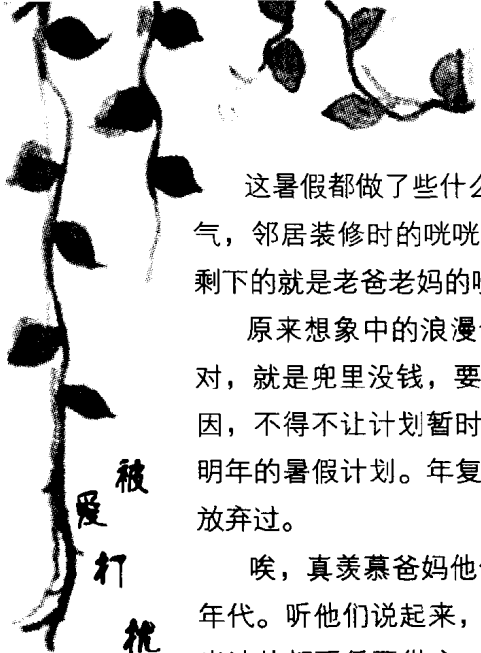 这暑假都做了些什么
气，邻居装修时的咣咣
剩下的就是老爸老妈的
原来想象中的浪漫
对，就是兜里没钱，要
因，不得不让计划暂时
明年的暑假计划。年复
放弃过。
唉，真羡慕爸妈他
年代。听他们说起来，
被
爱
打
扰